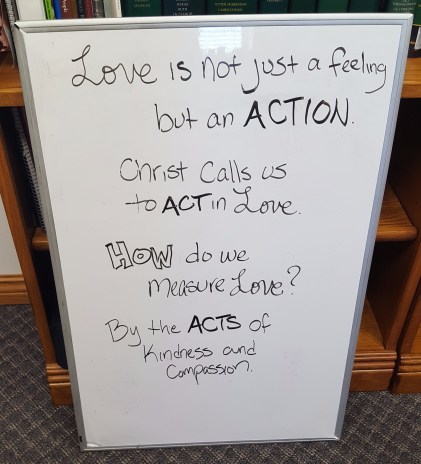 Love is not just a feeling
but an ACTION.
Christ Calls us
to ACT in Love.
HOW do we
measure Love?
By the ACTS of
Kindness and
Compassion.